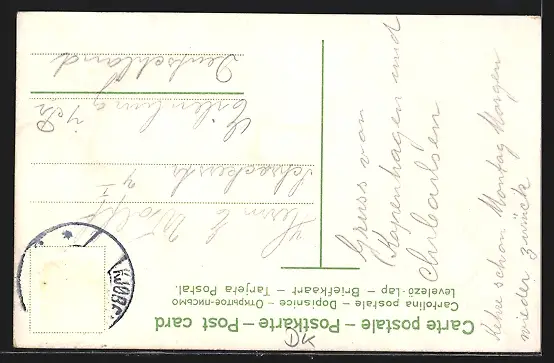 Carte postale – Postkarte – Post card
Cartolina postale – Dopisnice – Открытое письмо
Levelező-Lap – Briefkaart – Tarjeta Postal.
KJØB
Herrn E Wolff
Deutschland
Gruss von
Kopenhagen und
Kehre schon Montag Morgen
wieder zurück
DK